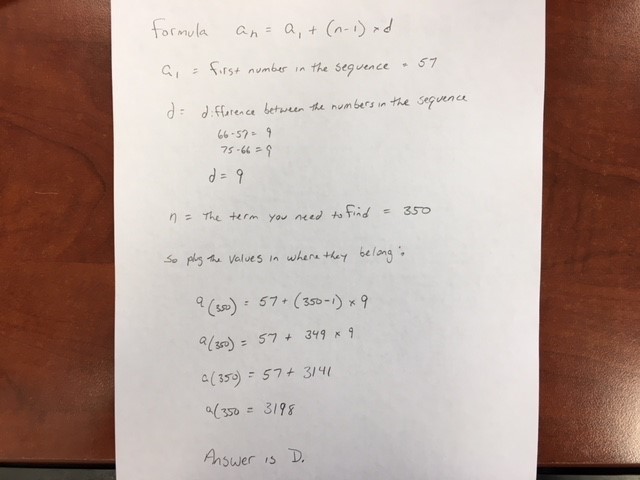 Formula an = a1 + (n-1) × d
a1 = first number in the sequence = 57
d = difference between the numbers in the sequence
66-57 = 9
75-66 = 9
d = 9
n = The term you need to find = 350
So plug the values in where they belong:
a(350) = 57 + (350-1) × 9
a(350) = 57 + 349 × 9
a(350) = 57 + 3141
a(350 = 3198
Answer is D.